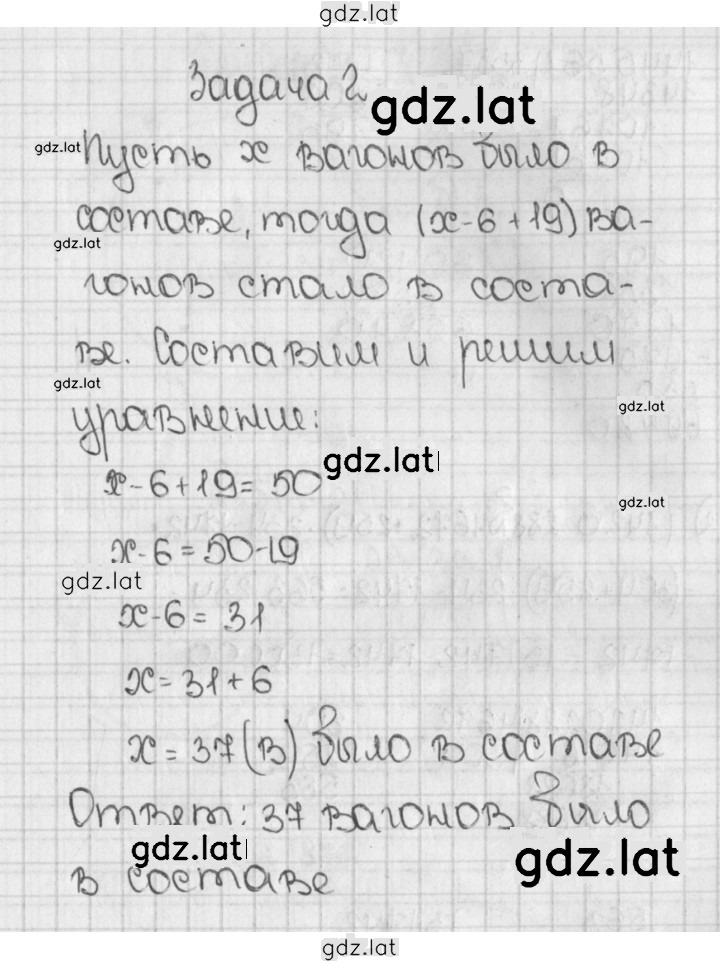 gdz.lat
Задача 2
gdz.lat
gdz.lat Пусть x вагонов было в
составе, тогда (x-6+19) ва-
gdz.lat
гонов стало в соста-
ве. Составим и решим
gdz.lat
gdz.lat
уравнение:
gdz.lat
x-6+19=50
gdz.lat
x-6=50-19
gdz.lat
x-6=31
x=31+6
x=37(в) было в составе
Ответ: 37 вагонов было
gdz.lat
gdz.lat
в составе
gdz.lat